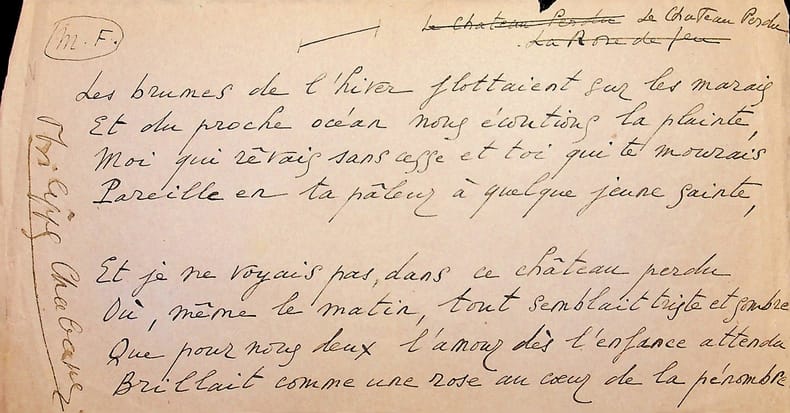 M. F.
Le Chateau Perdu Le Chateau Perdu
La Rose de feu
Les brumes de l'hiver flottaient sur les marais
Et du proche océan nous écoutions la plainte,
Moi qui rêvais sans cesse et toi qui te mourais
Pareille en ta pâleur à quelque jeune sainte,
Et je ne voyais pas, dans ce château perdu
Où, même le matin, tout semblait triste et sombre
Que pour nous deux l'amour dès l'enfance attendu
Brillait comme une rose au cœur de la pénombre
Philippe Chabaneix